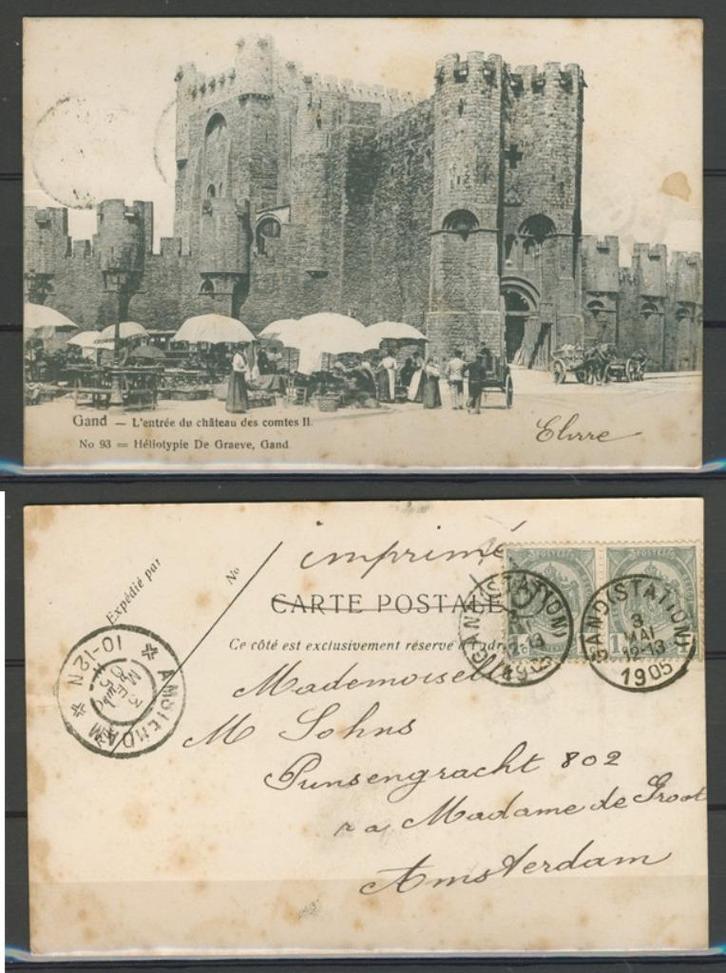 Gand — L'entrée du château des comtes II
No 93 = Héliotypie De Graeve, Gand
Elvire
imprimé
Expédié par
No
CARTE POSTALE
Ce côté est exclusivement réservé à l'adr
GAND (STATION)
GAND (STATION)
3
MAI
12-13
1905
AMSTERDAM
10-12N
Mademoiselle
M Sohns
Prinsengracht 802
Madame de Groot
Amsterdam